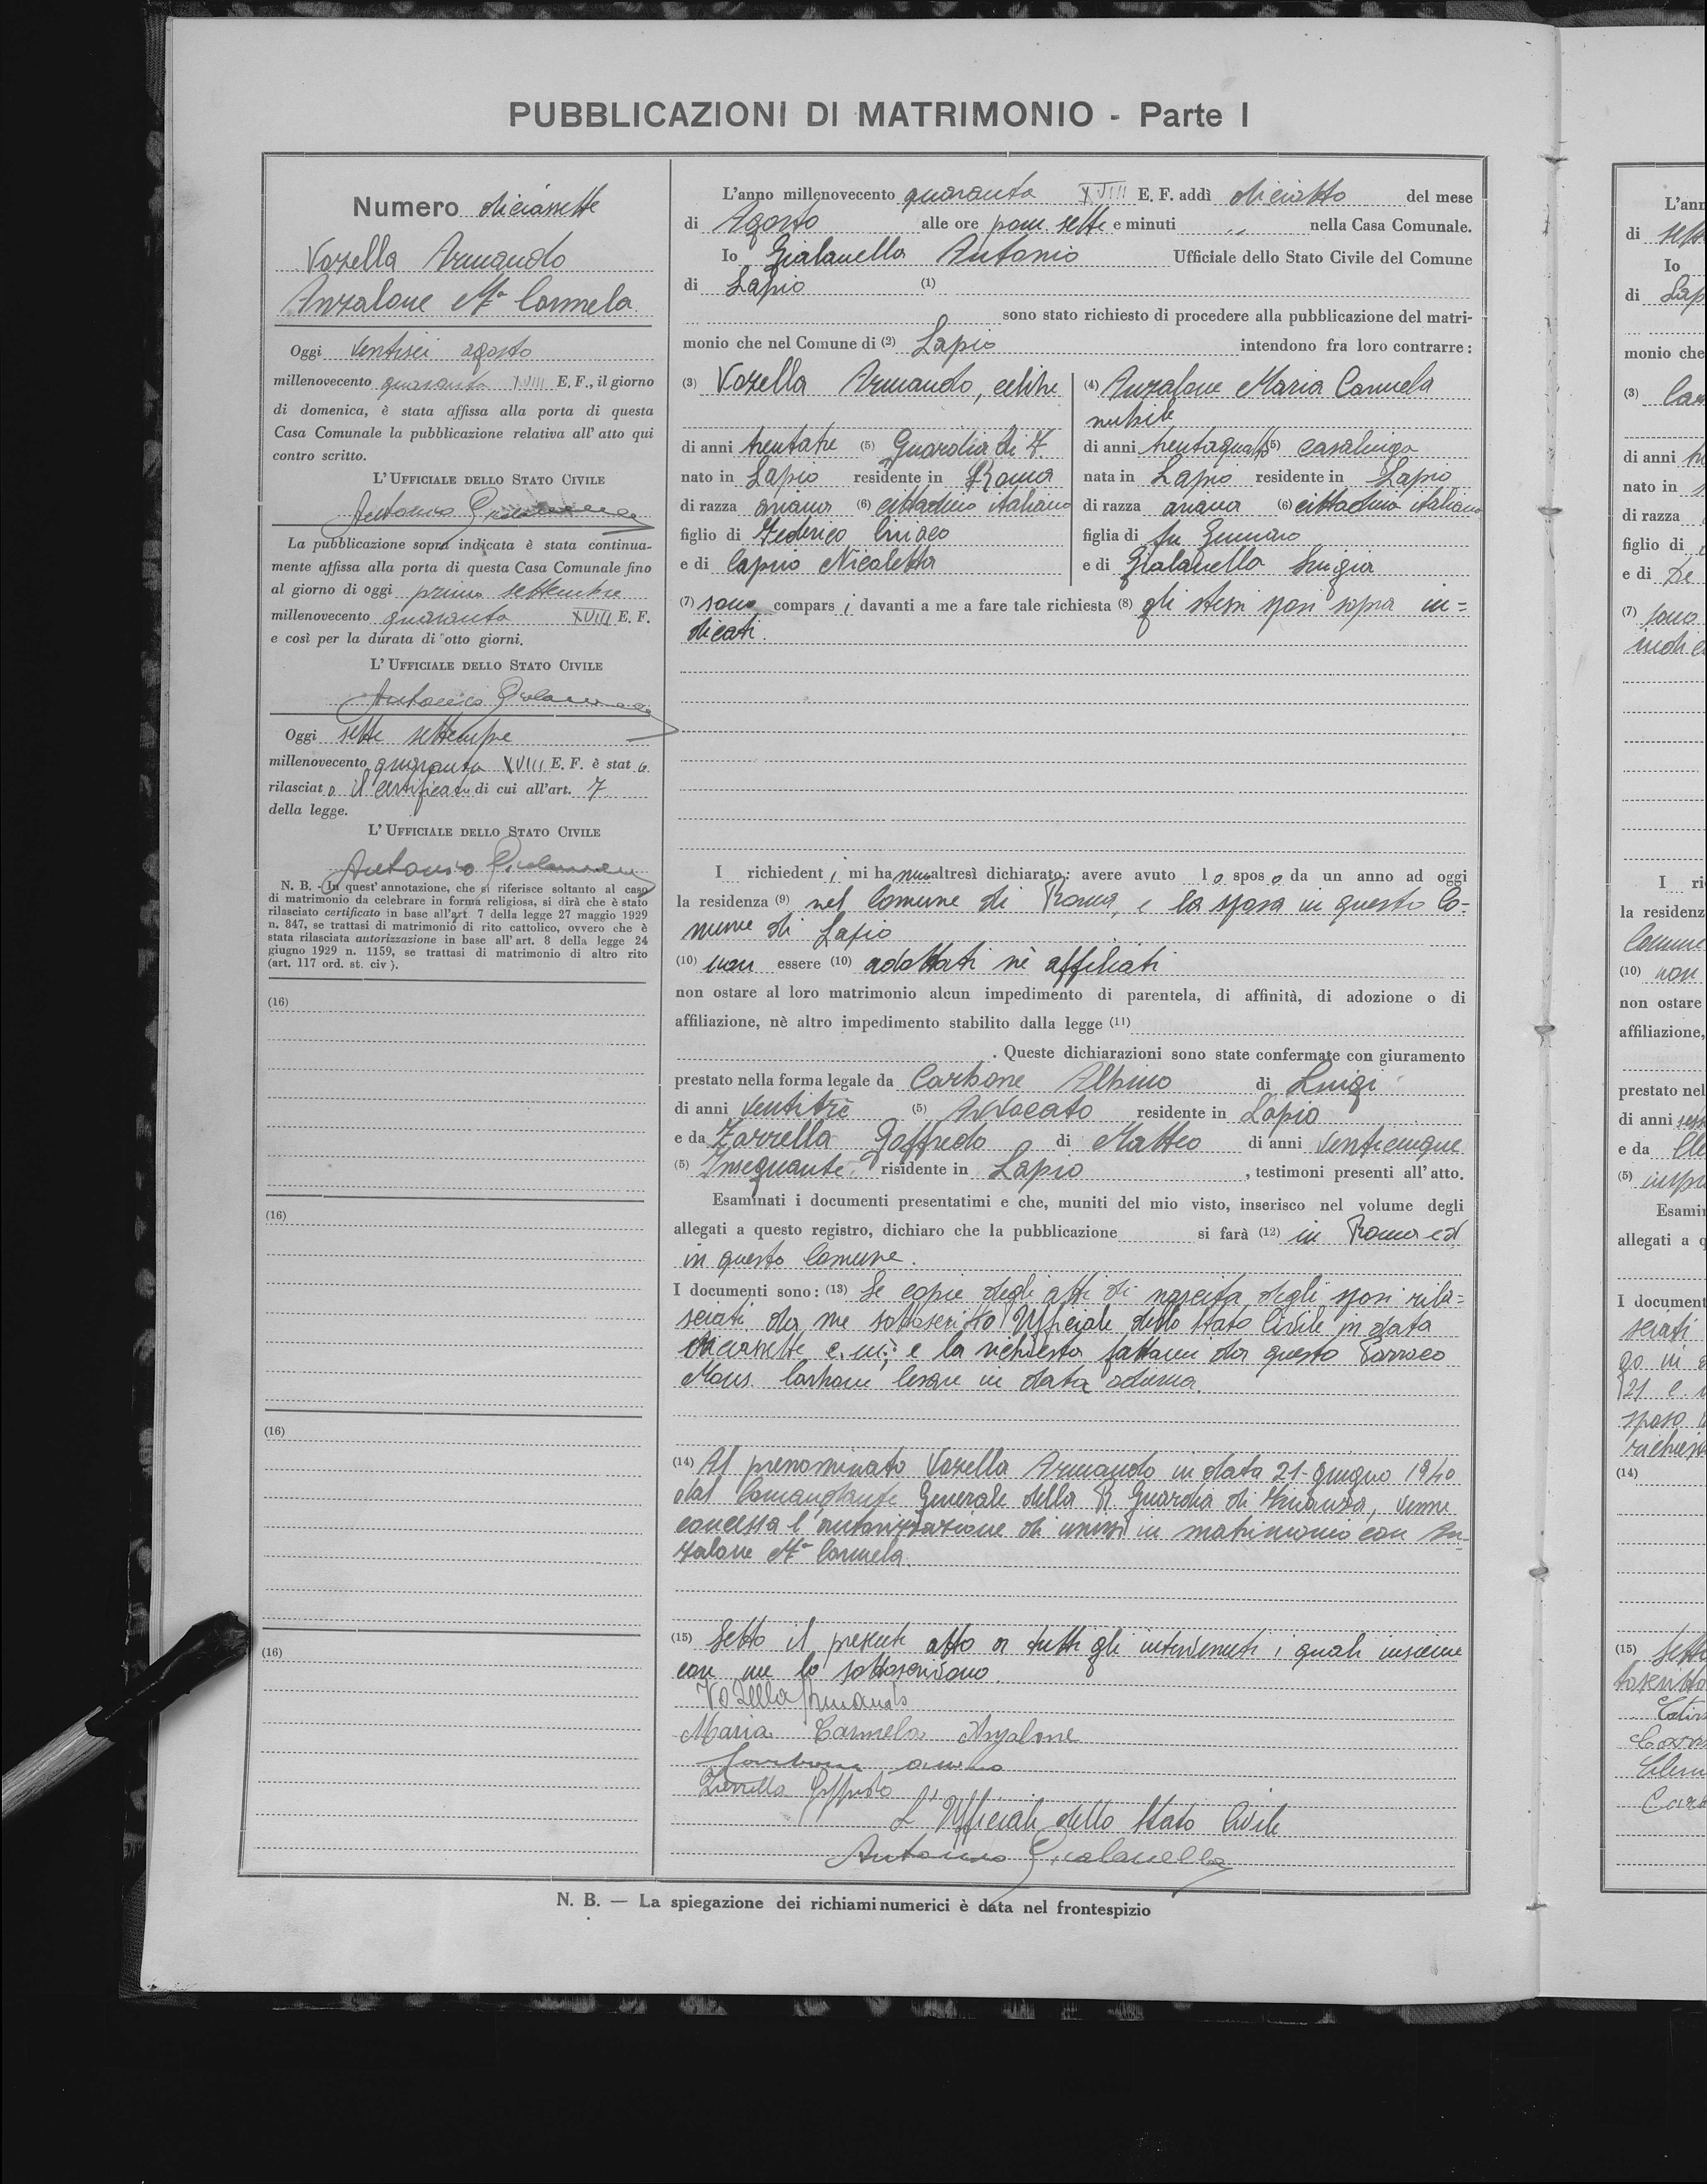 PUBBLICAZIONI DI MATRIMONIO - Parte I
Numero diciassette
Vozella Armando
Anzalone Mª Carmela
Oggi ventisei agosto
millenovecento quaranta XVIII E. F., il giorno
di domenica, è stata affissa alla porta di questa
Casa Comunale la pubblicazione relativa all' atto qui
contro scritto.
L'UFFICIALE DELLO STATO CIVILE
Antonio Gialanella
La pubblicazione sopra indicata è stata continua-
mente affissa alla porta di questa Casa Comunale fino
al giorno di oggi primo settembre
millenovecento quaranta XVIII E. F.
e così per la durata di otto giorni.
L'UFFICIALE DELLO STATO CIVILE
Antonio Gialanella
Oggi sette settembre
millenovecento quaranta XVIII E. F. è stat o
rilasciat o il certificato di cui all'art. 7
della legge.
L'UFFICIALE DELLO STATO CIVILE
Antonio Gialanella
N. B. - In quest' annotazione, che si riferisce soltanto al caso
di matrimonio da celebrare in forma religiosa, si dirà che è stato
rilasciato certificato in base all'art 7 della legge 27 maggio 1929
n. 847, se trattasi di matrimonio di rito cattolico, ovvero che è
stata rilasciata autorizzazione in base all' art. 8 della legge 24
giugno 1929 n. 1159, se trattasi di matrimonio di altro rito
(art. 117 ord. st. civ ).
(16)
(16)
(16)
(16)
L'anno millenovecento quaranta XVIII E. F. addì diciotto del mese
di Agosto alle ore pom. sette e minuti ,, nella Casa Comunale.
Io Gialanella Antonio Ufficiale dello Stato Civile del Comune
di Lapio (1)
sono stato richiesto di procedere alla pubblicazione del matri-
monio che nel Comune di (2) Lapio intendono fra loro contrarre:
(3) Vozella Armando, celibe
di anni trentatre (5) Guardia di F.
nato in Lapio residente in Roma
di razza ariana (6) cittadino italiano
figlio di Federico Ciriaco
e di Caprio Nicoletta
(4) Anzalone Maria Carmela
nubile
di anni trentaquattro (5) casalinga
nata in Lapio residente in Lapio
di razza ariana (6) cittadina italiana
figlia di fu Gennaro
e di Gialanella Luigia
(7) sono compars i davanti a me a fare tale richiesta (8) gli stessi sposi sopra in=
dicati.
I richiedent i mi ha nno altresì dichiarato: avere avuto l o spos o da un anno ad oggi
la residenza (9) nel Comune di Roma, e la sposa in questo Co-
mune di Lapio
(10) non essere (10) adottati nè affiliati
non ostare al loro matrimonio alcun impedimento di parentela, di affinità, di adozione o di
affiliazione, nè altro impedimento stabilito dalla legge (11)
. Queste dichiarazioni sono state confermate con giuramento
prestato nella forma legale da Carbone Albino di Luigi
di anni ventitrè (5) Avvocato residente in Lapio
e da Zarrella Goffredo di Matteo di anni venticinque
(5) Insegnante risidente in Lapio , testimoni presenti all' atto.
Esaminati i documenti presentatimi e che, muniti del mio visto, inserisco nel volume degli
allegati a questo registro, dichiaro che la pubblicazione si farà (12) in Roma ed
in questo Comune.
I documenti sono: (13) Le copie degli atti di nascita degli sposi rila=
sciati da me sottoscritto Ufficiale dello Stato Civile in data
diciassette c. m. e la richiesta fattami da questo Parroco
Mons. Carbone Cesare in data odierna.
(14) Al prenominato Vozella Armando in data 21 giugno 1940
dal Comandante Generale della R. Guardia di Finanza, venne
concessa l'autorizzazione di unirsi in matrimonio con An-
zalone Mª Carmela.
(15) Letto il presente atto a tutti gli intervenuti i quali insieme
con me lo sottoscrivono.
Vozella Armando
Maria Carmela Anzalone
Carbone Albino
Zarrella Goffredo
L'Ufficiale dello Stato Civile
Antonio Gialanella
N. B. — La spiegazione dei richiami numerici è data nel frontespizio
L'ann
di sett
Io
di Lap
monio che
(3) Car
di anni
nato in
di razza
figlio di
e di De
(7) sono
indica
I ri
la residenz
Comune
(10) non
non ostare
affiliazione,
prestato nel
di anni sess
e da
(5)
Esamin
allegati a q
I document
sciati
go in
21 e
sposo
richiest
(14)
(15) Letto
toscritto